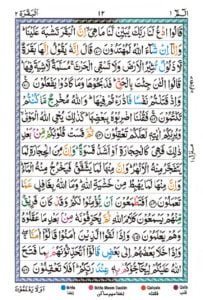 الٓمّٓ ١
١٣
البقرة ٢
قَالُوا ادْعُ لَنَا رَبَّكَ يُبَيِّنْ لَّنَا مَا هِيَ ۙ اِنَّ الْبَقَرَ تَشٰبَهَ عَلَيْنَا ؕ
وَاِنَّاۤ اِنْ شَآءَ اللّٰهُ لَمُهْتَدُوْنَ ۝ قَالَ اِنَّهٗ يَقُوْلُ اِنَّهَا بَقَرَةٌ
لَّا ذَلُوْلٌ تُثِيْرُ الْاَرْضَ وَلَا تَسْقِي الْحَرْثَ ۚ مُسَلَّمَةٌ لَّا شِيَةَ فِيْهَا ؕ
قَالُوا الْـٰٔنَ جِئْتَ بِالْحَقِّ ؕ فَذَبَحُوْهَا وَمَا كَادُوْا يَفْعَلُوْنَ ۝
وَاِذْ قَتَلْتُمْ نَفْسًا فَادّٰرَءْتُمْ فِيْهَا ؕ وَاللّٰهُ مُخْرِجٌ مَّا كُنْتُمْ
تَكْتُمُوْنَ ۝ فَقُلْنَا اضْرِبُوْهُ بِبَعْضِهَا ؕ كَذٰلِكَ يُحْيِ اللّٰهُ الْمَوْتٰى ۙ
وَيُرِيْكُمْ اٰيٰتِهٖ لَعَلَّكُمْ تَعْقِلُوْنَ ۝ ثُمَّ قَسَتْ قُلُوْبُكُمْ مِّنْۢ بَعْدِ
ذٰلِكَ فَهِيَ كَالْحِجَارَةِ اَوْ اَشَدُّ قَسْوَةً ؕ وَاِنَّ مِنَ الْحِجَارَةِ لَمَا
يَتَفَجَّرُ مِنْهُ الْاَنْهٰرُ ؕ وَاِنَّ مِنْهَا لَمَا يَشَّقَّقُ فَيَخْرُجُ مِنْهُ
الْمَآءُ ؕ وَاِنَّ مِنْهَا لَمَا يَهْبِطُ مِنْ خَشْيَةِ اللّٰهِ ؕ وَمَا اللّٰهُ بِغَافِلٍ عَمَّا
تَعْمَلُوْنَ ۝ اَفَتَطْمَعُوْنَ اَنْ يُّؤْمِنُوْا لَكُمْ وَقَدْ كَانَ فَرِيْقٌ
مِّنْهُمْ يَسْمَعُوْنَ كَلٰمَ اللّٰهِ ثُمَّ يُحَرِّفُوْنَهٗ مِنْۢ بَعْدِ مَا عَقَلُوْهُ
وَهُمْ يَعْلَمُوْنَ ۝ وَاِذَا لَقُوا الَّذِيْنَ اٰمَنُوْا قَالُوْۤا اٰمَنَّا ۖۚ
وَاِذَا خَلَا بَعْضُهُمْ اِلٰى بَعْضٍ قَالُوْۤا اَتُحَدِّثُوْنَهُمْ بِمَا فَتَحَ
اللّٰهُ عَلَيْكُمْ لِيُحَآجُّوْكُمْ بِهٖ عِنْدَ رَبِّكُمْ ؕ اَفَلَا تَعْقِلُوْنَ ۝
اَوَلَا يَعْلَمُوْنَ